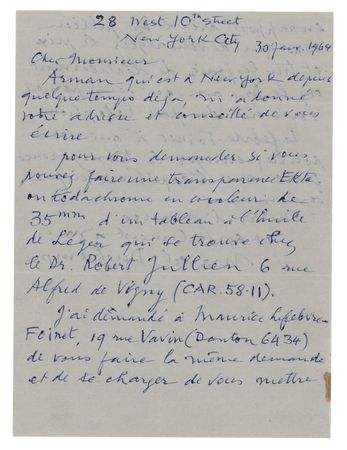 28 West 10th Street
New York City
30 janv. 1964
Cher Monsieur
Arman qui est à New York depuis
quelque temps déja, m'a donné
votre adresse et conseillé de vous
écrire
pour vous demander si vous
pouvez faire une transparence Ekta
ou Kodachrome en couleur de
35mm d'un tableau à l'huile
de Léger qui se trouve chez
le Dr. Robert Jullien 6 rue
Alfred de Vigny (CAR. 58-11).
J'ai demandé à Maurice Lefebvre-
Foinet, 19 rue Vavin (Danton 6434)
de vous faire la même demande
et de se charger de vous mettre